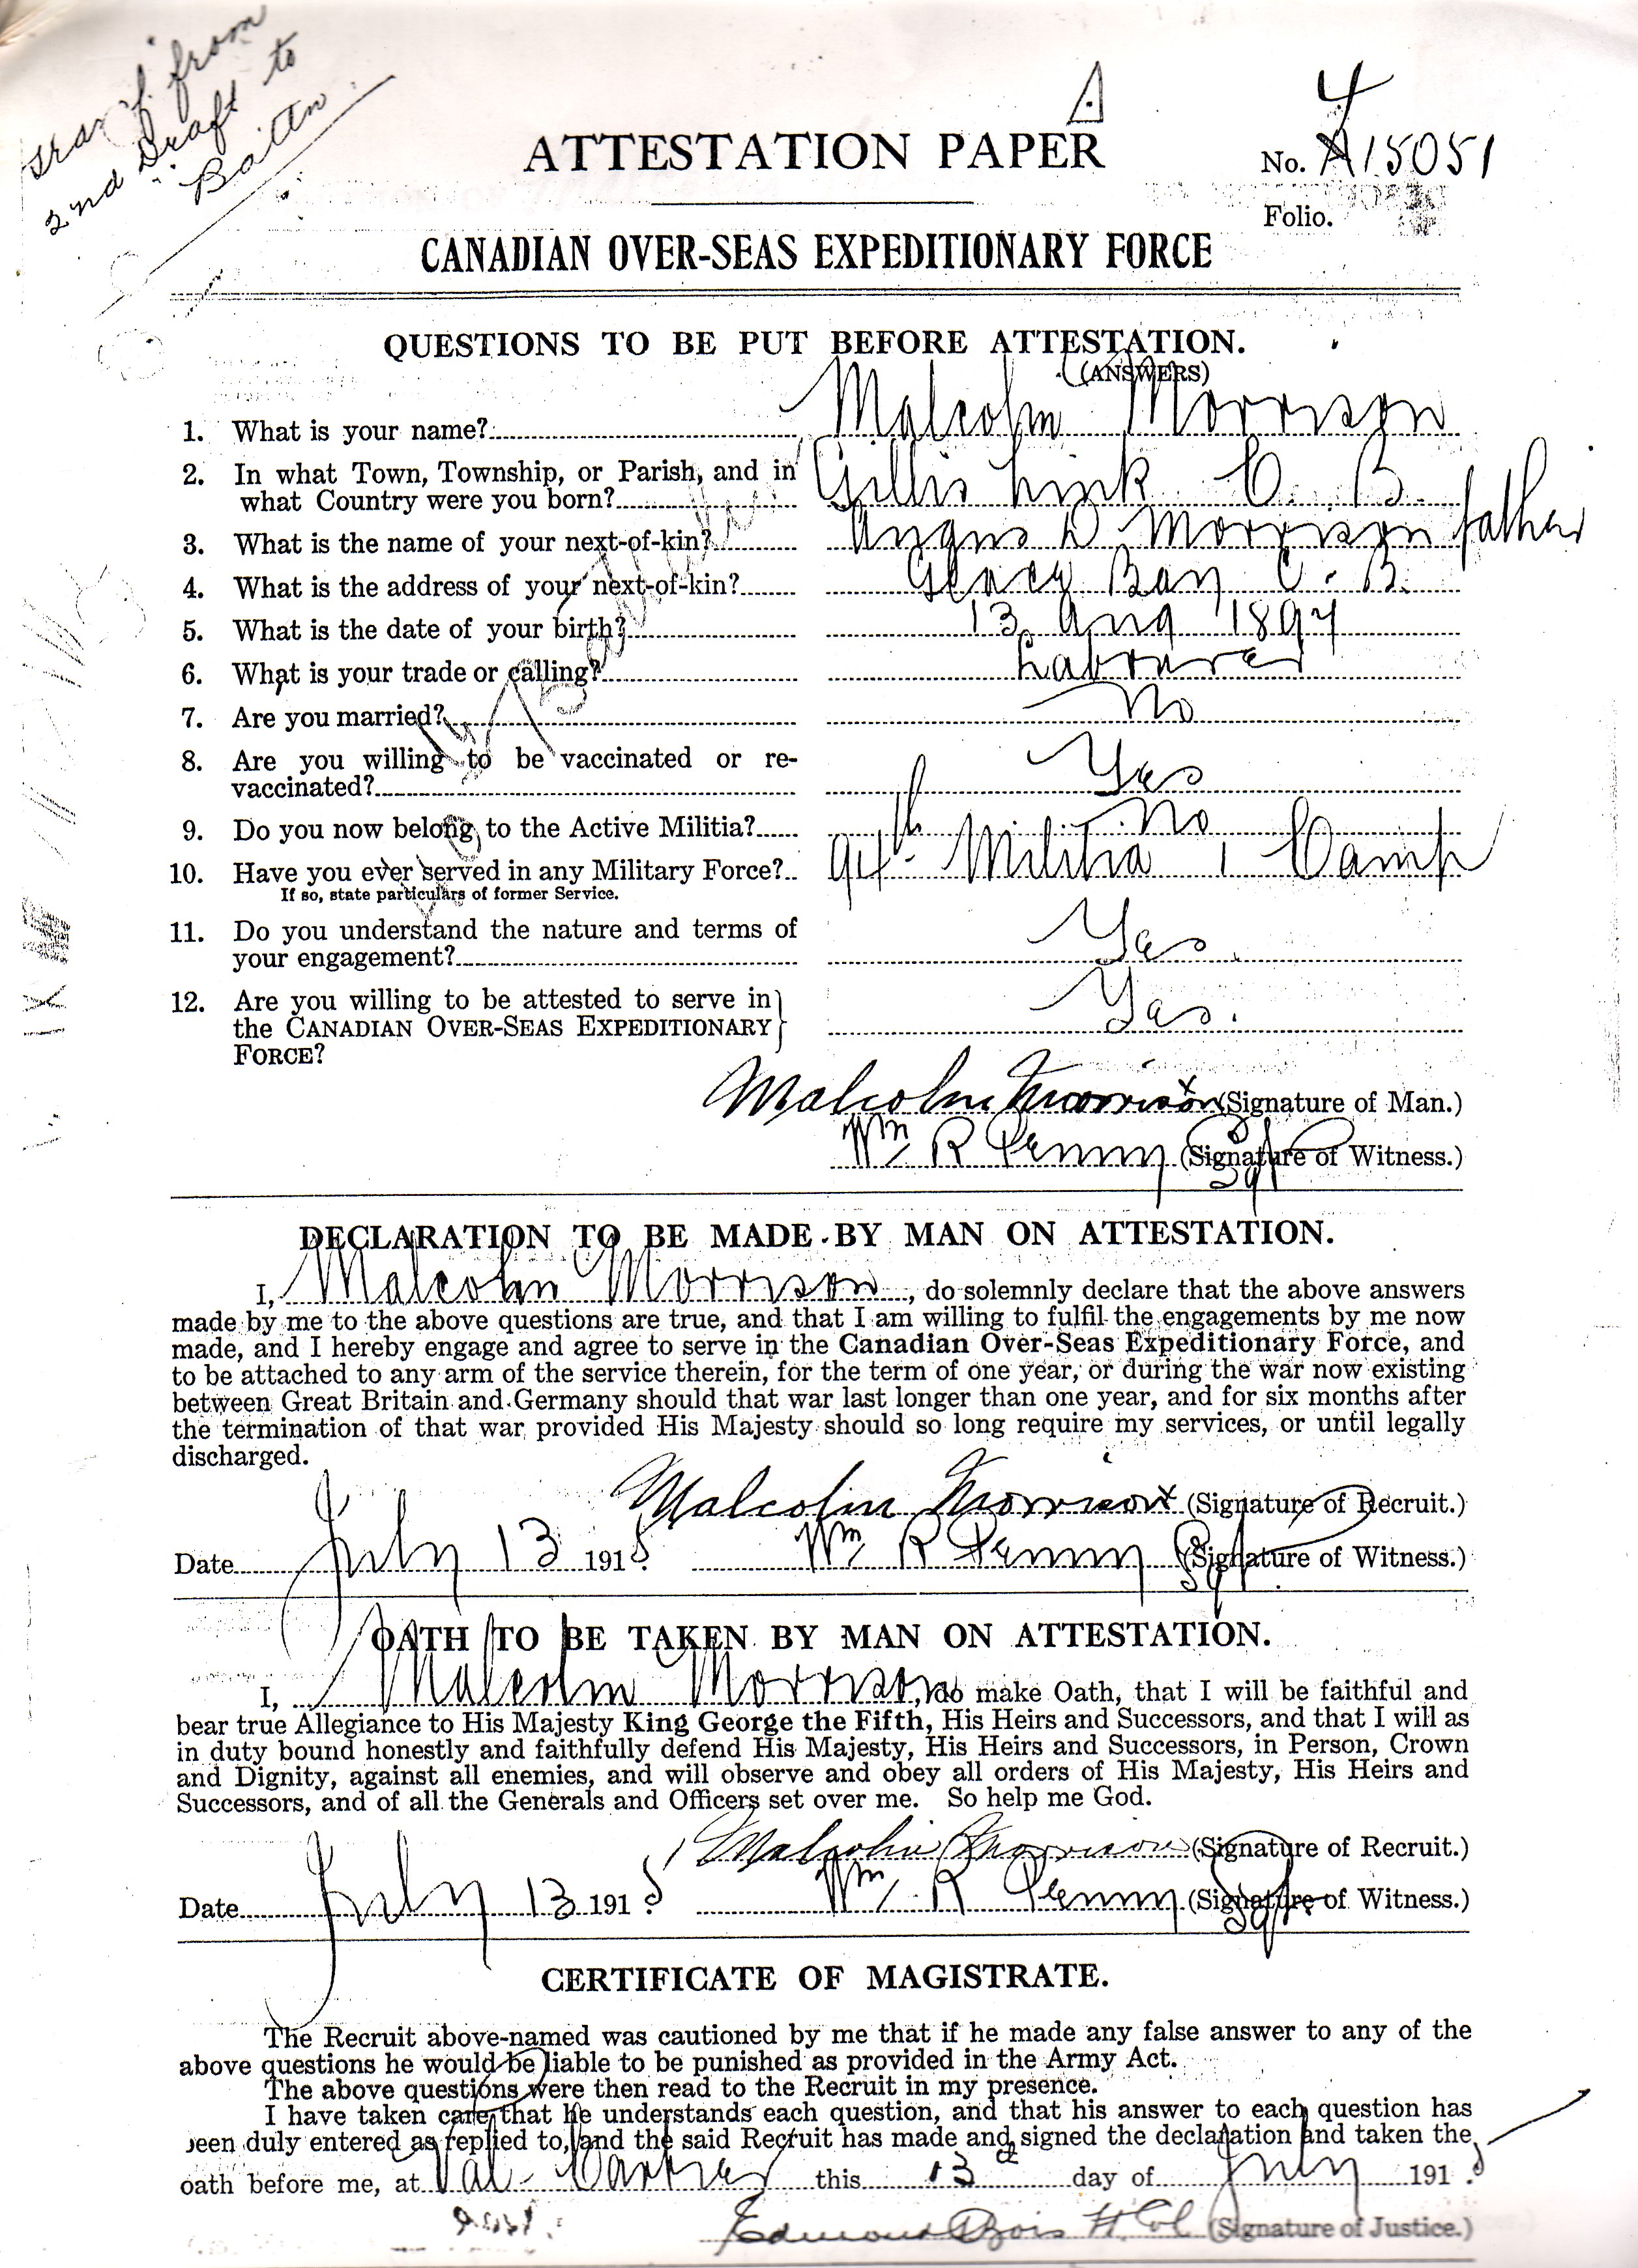 from
2nd Draft to
Battn
ATTESTATION PAPER
No. 415051
Folio.
CANADIAN OVER-SEAS EXPEDITIONARY FORCE
QUESTIONS TO BE PUT BEFORE ATTESTATION.
(ANSWERS)
1. What is your name? Malcolm Morrison
2. In what Town, Township, or Parish, and in
what Country were you born? Gillis Link C. B.
3. What is the name of your next-of-kin? Angus D Morrison father
4. What is the address of your next-of-kin? Glace Bay C. B.
5. What is the date of your birth? 13 Aug 1897
6. What is your trade or calling? Labourer
7. Are you married? No
8. Are you willing to be vaccinated or re-
vaccinated? Yes
9. Do you now belong to the Active Militia? No
10. Have you ever served in any Military Force? 94th Militia 1 Camp
If so, state particulars of former Service.
11. Do you understand the nature and terms of
your engagement? Yes.
12. Are you willing to be attested to serve in
the CANADIAN OVER-SEAS EXPEDITIONARY Yes.
FORCE?
Malcolm Morrison (Signature of Man.)
Wm R Penny Sgt (Signature of Witness.)
DECLARATION TO BE MADE BY MAN ON ATTESTATION.
I, Malcolm Morrison, do solemnly declare that the above answers
made by me to the above questions are true, and that I am willing to fulfil the engagements by me now
made, and I hereby engage and agree to serve in the Canadian Over-Seas Expeditionary Force, and
to be attached to any arm of the service therein, for the term of one year, or during the war now existing
between Great Britain and Germany should that war last longer than one year, and for six months after
the termination of that war provided His Majesty should so long require my services, or until legally
discharged.
Malcolm Morrison x (Signature of Recruit.)
Date July 13 1915 Wm R Penny Sgt (Signature of Witness.)
OATH TO BE TAKEN BY MAN ON ATTESTATION.
I, Malcolm Morrison, do make Oath, that I will be faithful and
bear true Allegiance to His Majesty King George the Fifth, His Heirs and Successors, and that I will as
in duty bound honestly and faithfully defend His Majesty, His Heirs and Successors, in Person, Crown
and Dignity, against all enemies, and will observe and obey all orders of His Majesty, His Heirs and
Successors, and of all the Generals and Officers set over me. So help me God.
Malcolm Morrison (Signature of Recruit.)
Date July 13 1915 Wm R Penny Sgt. (Signature of Witness.)
CERTIFICATE OF MAGISTRATE.
The Recruit above-named was cautioned by me that if he made any false answer to any of the
above questions he would be liable to be punished as provided in the Army Act.
The above questions were then read to the Recruit in my presence.
I have taken care that he understands each question, and that his answer to each question has
been duly entered as replied to, and the said Recruit has made and signed the declaration and taken the
oath before me, at Valcartier this 13 day of July 1915
Edmond Bois Lt Col (Signature of Justice.)